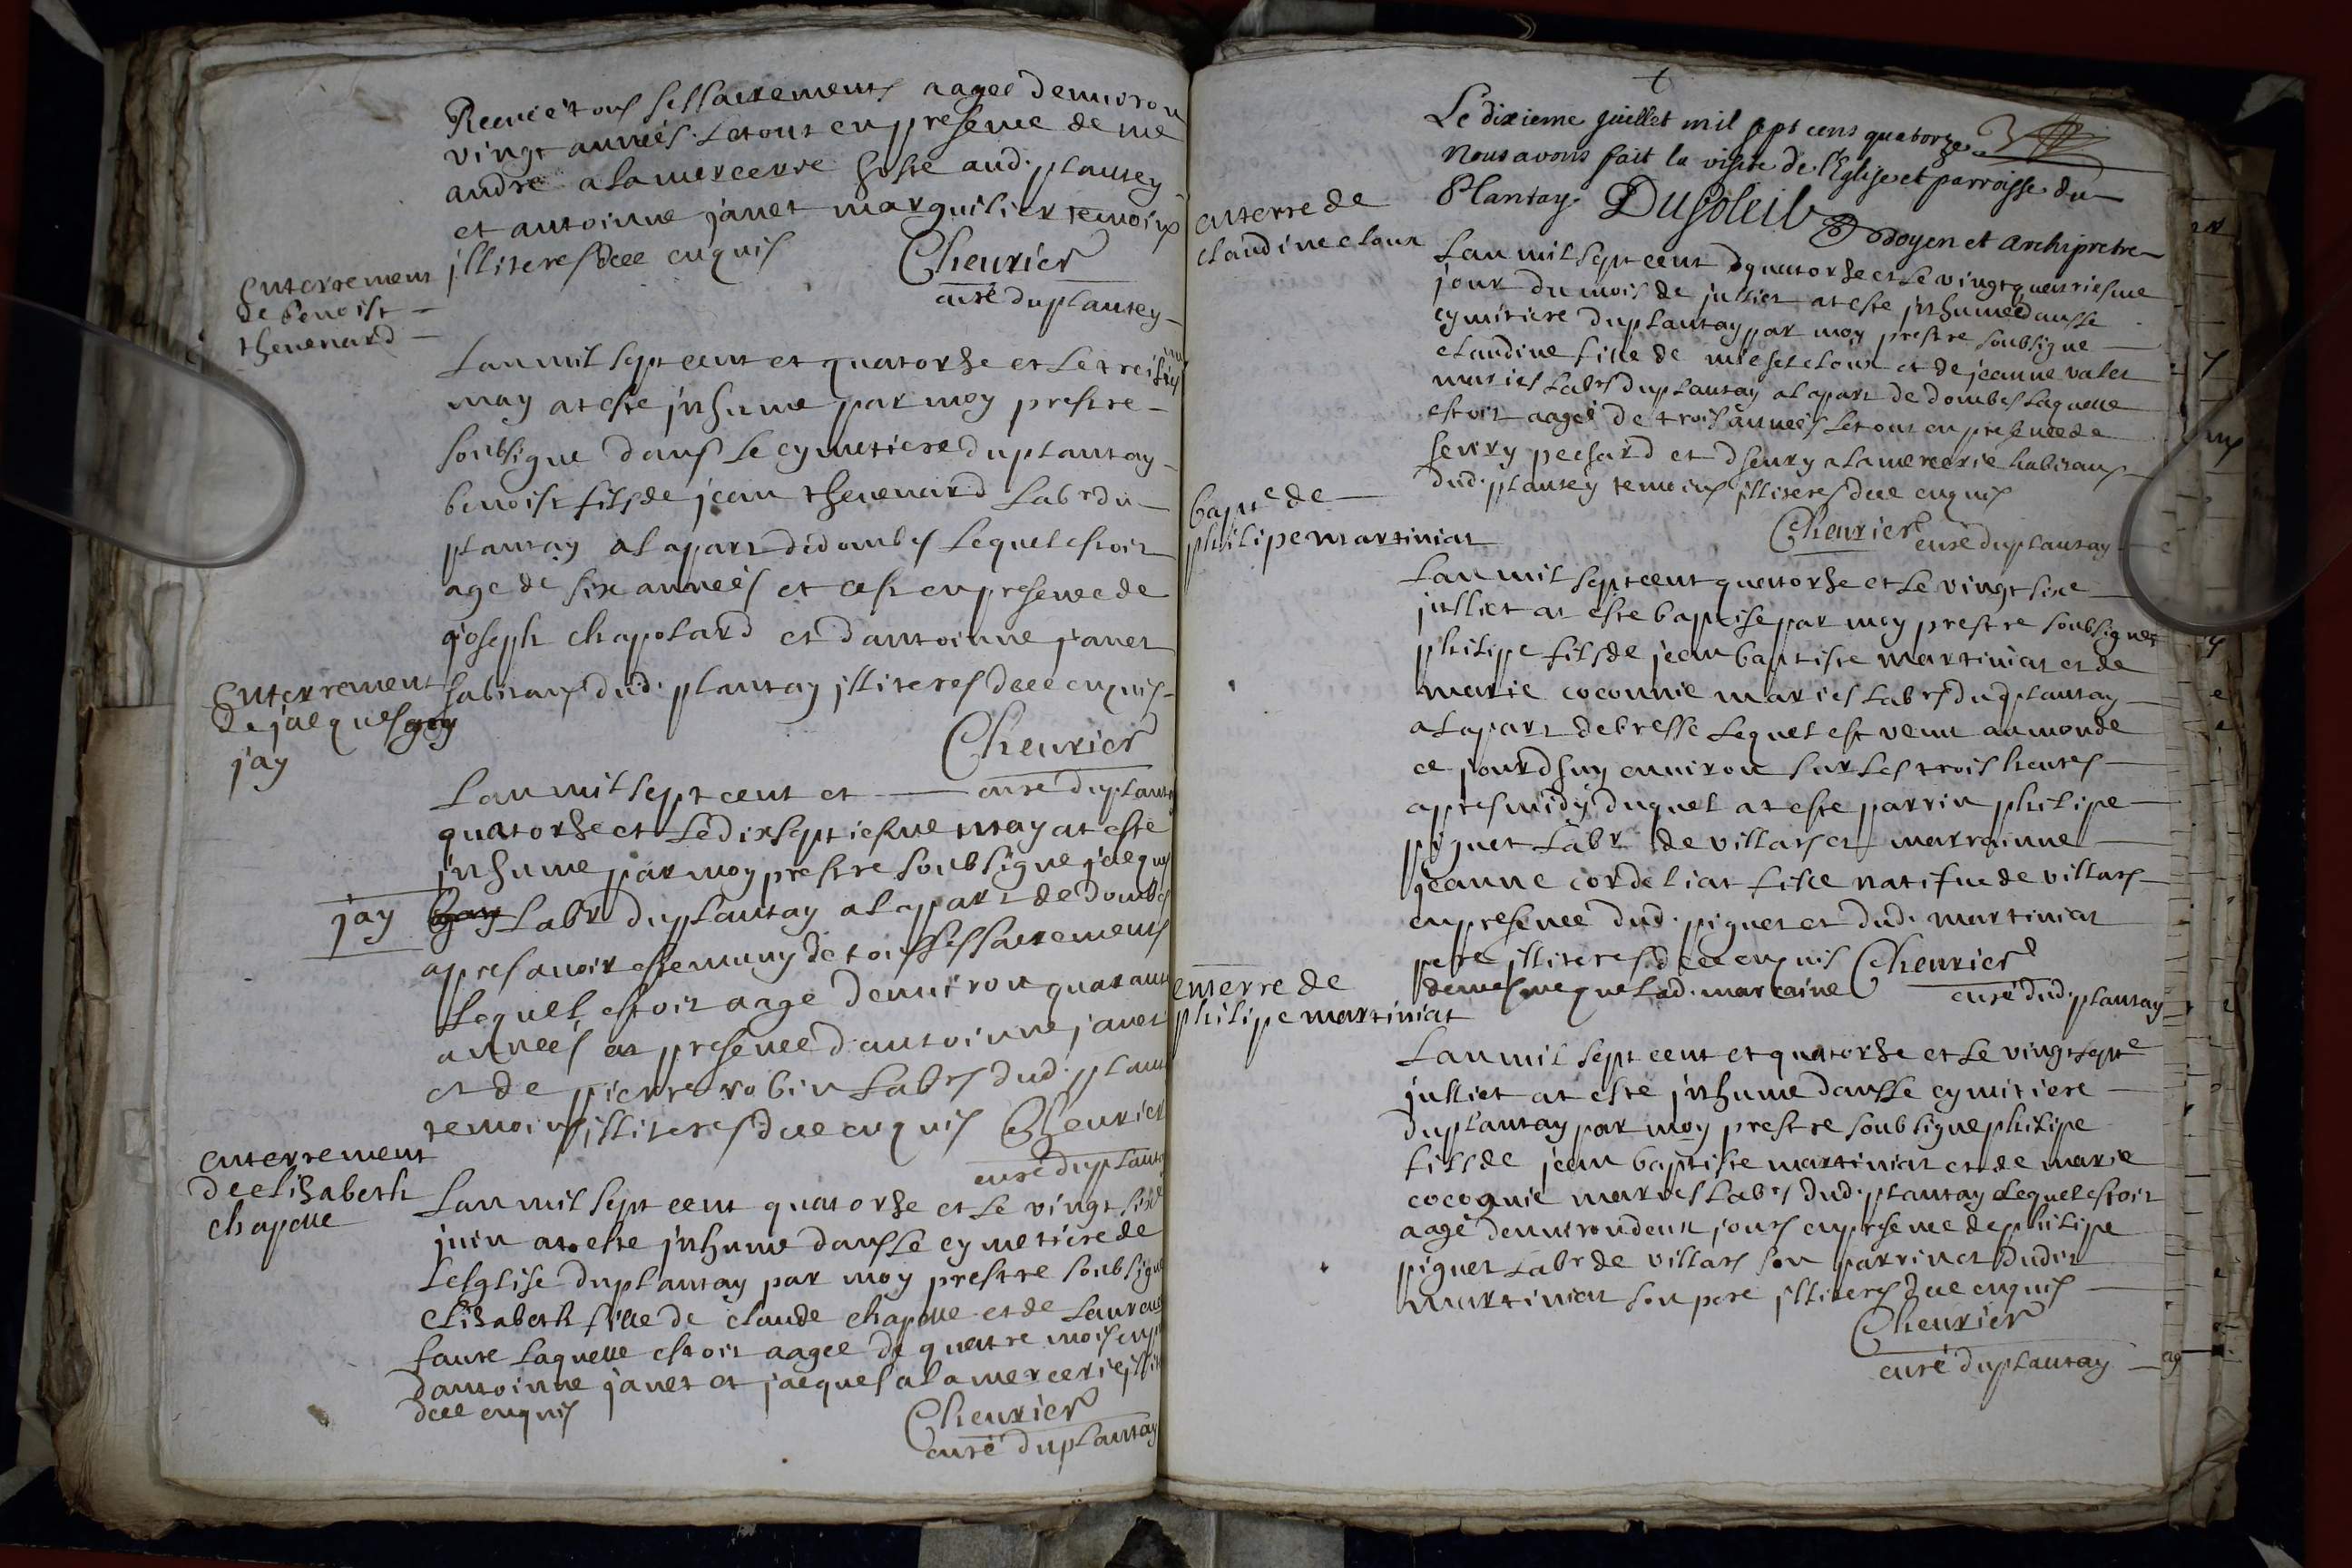 Receu tous ses sacremens aagee denuiron
vingt années le tout en presence de me
andré alamercerie hoste aud. plantey
et antoinne janet marguilier temoins
jlliteres de ce enquis
Cheurier
curé du plantey
enterrement
de benoist
thenenard
Lan mil sept cent et quatorse et le treisie
may at este jnhume par moy prestre
soubsigne dans le cymetiere du plantay
benoist fils de jean thenenard Labr du
plantay a la part de dombes lequel estoit
age de six années et cest en presence de
joseph chapolard et dantoinne janet
habitans dud. plantay jlliteres de ce enquis
Cheurier
curé du plantay
enterrement
de jacques gay
jay
Lan mil sept cent et
quatorse et le dixseptiesme may at este
jnhume par moy prestre soubsigne jacques
jay
gay Labr du plantay a la part de dombes
apres auoir este muny de tous ses sacremens
lequel estoit aage denuiron quarante
années en presence dantoinne janet
et de pierre robin Labrs dud. plantay
temoins jlliteres de ce enquis Cheurier
curé du plantay
enterrement
de elisabeth
chapelle
Lan mil sept cent quatorse et le vingt sixe
juin at este jnhume dans le cymetiere de
lesglise du plantay par moy prestre soubsigne
elisabeth fille de claude chapelle et de Laurence
faure laquelle estoit aagee de quatre mois en
dantoinne janet et jacques alamercerie jllit
de ce enquis
Cheurier
curé du plantay
Le dixieme juillet mil sept cens quatorze
Nous avons fait la visite de l'Eglise et parroisse du
Plantay. Dusoleil Doyen et Archipretre
enterre de
claudine cloux
Lan mil sept cent quatorse et le vingtquatriesme
jour du mois de julliet at este jnhumée dans le
cymitiere du plantay par moy prestre soubsigne
claudine fille de michel cloux et de jeanne valet
maries Labrs du plantay a la part de dombes laquelle
estoit aagée de trois années le tout en presence de
henry pechard et dhenry alamercerie habitans
dud. plantey temoins jlliteres de ce enquis
Cheurier curé du plantay
bapte de
philipe martiniat
Lan mil sept cent quatorse et le vingt sixe
julliet at este baptise par moy prestre soubsignet
philipe fils de jean baptiste martiniat et de
marie coconnie maries Labrs du plantay
a la part de bresse lequel est venu au monde
ce jourdhuy enuiron sur les trois heures
apres midy duquel at este parrin philipe
piguet Labr de villars et marrainne
jeanne cordeliat fille natifue de villars
en presence dud. piguet et dud. martiniat
pere jlliteres de ce enquis Cheurier
de mesme que lad. marraine curé dud. plantay
enterre de
philipe martiniat
Lan mil sept cent et quatorse et le vingt septe
julliet at este jnhume dans le cymitiere
du plantay par moy prestre soubsigne philipe
fils de jean baptiste martiniat et de marie
cocognie maries Labrs dud. plantay lequel estoit
aagé denuiron deux jours en presence de philipe
piguet Labr de villars son parrin et dudit
martiniat son pere jlliteres de ce enquis
Cheurier
curé du plantay